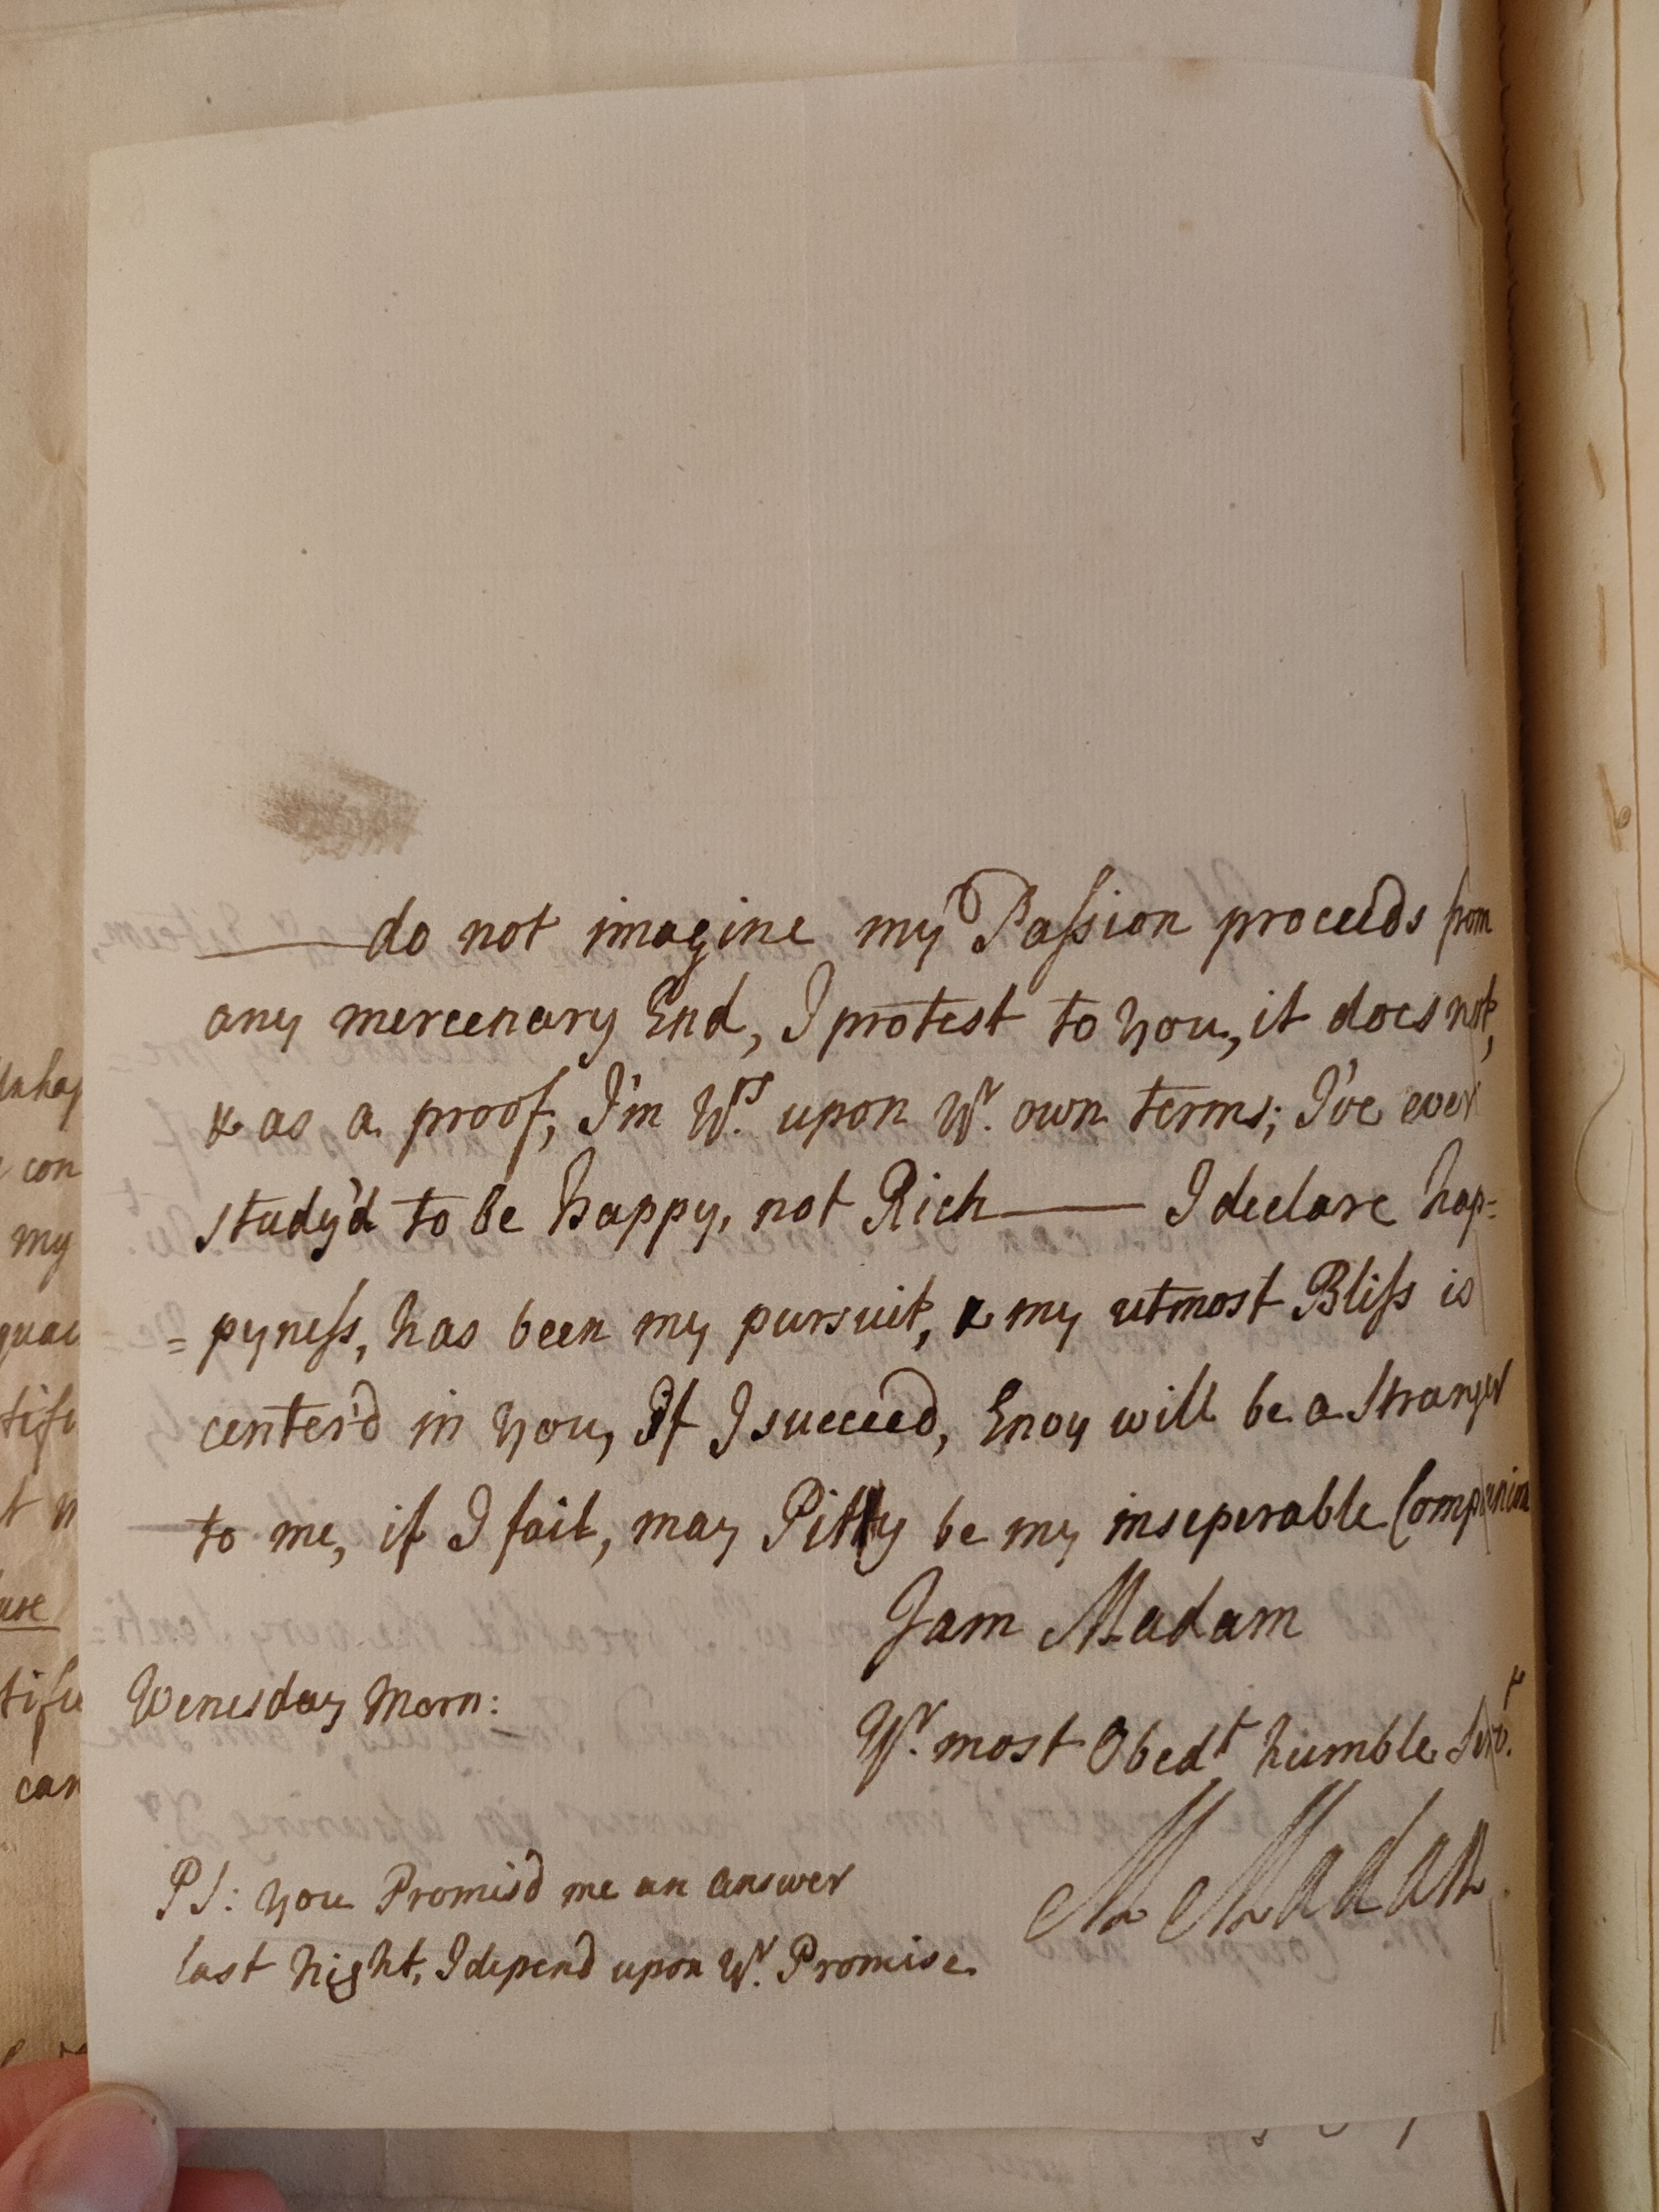 —— do not imagine my Passion proceeds from
any mercenary End, I protest to you, it does not,
& as a proof, I'm Yrs upon Yr own terms; I've ever
study'd to be happy, not Rich —— I declare hap=
=pyness, has been my pursuit, & my utmost Bliss is
center'd in you, If I succeed, Envy will be a Stranger
to me, if I fail, may Pitty be my inseperable Companion
I am Madam
Wenesday Morn:
Yr. most Obedt humble Servt.
M Madan
PS: you Promis'd me an answer
last night, I depend upon Yr. Promise.